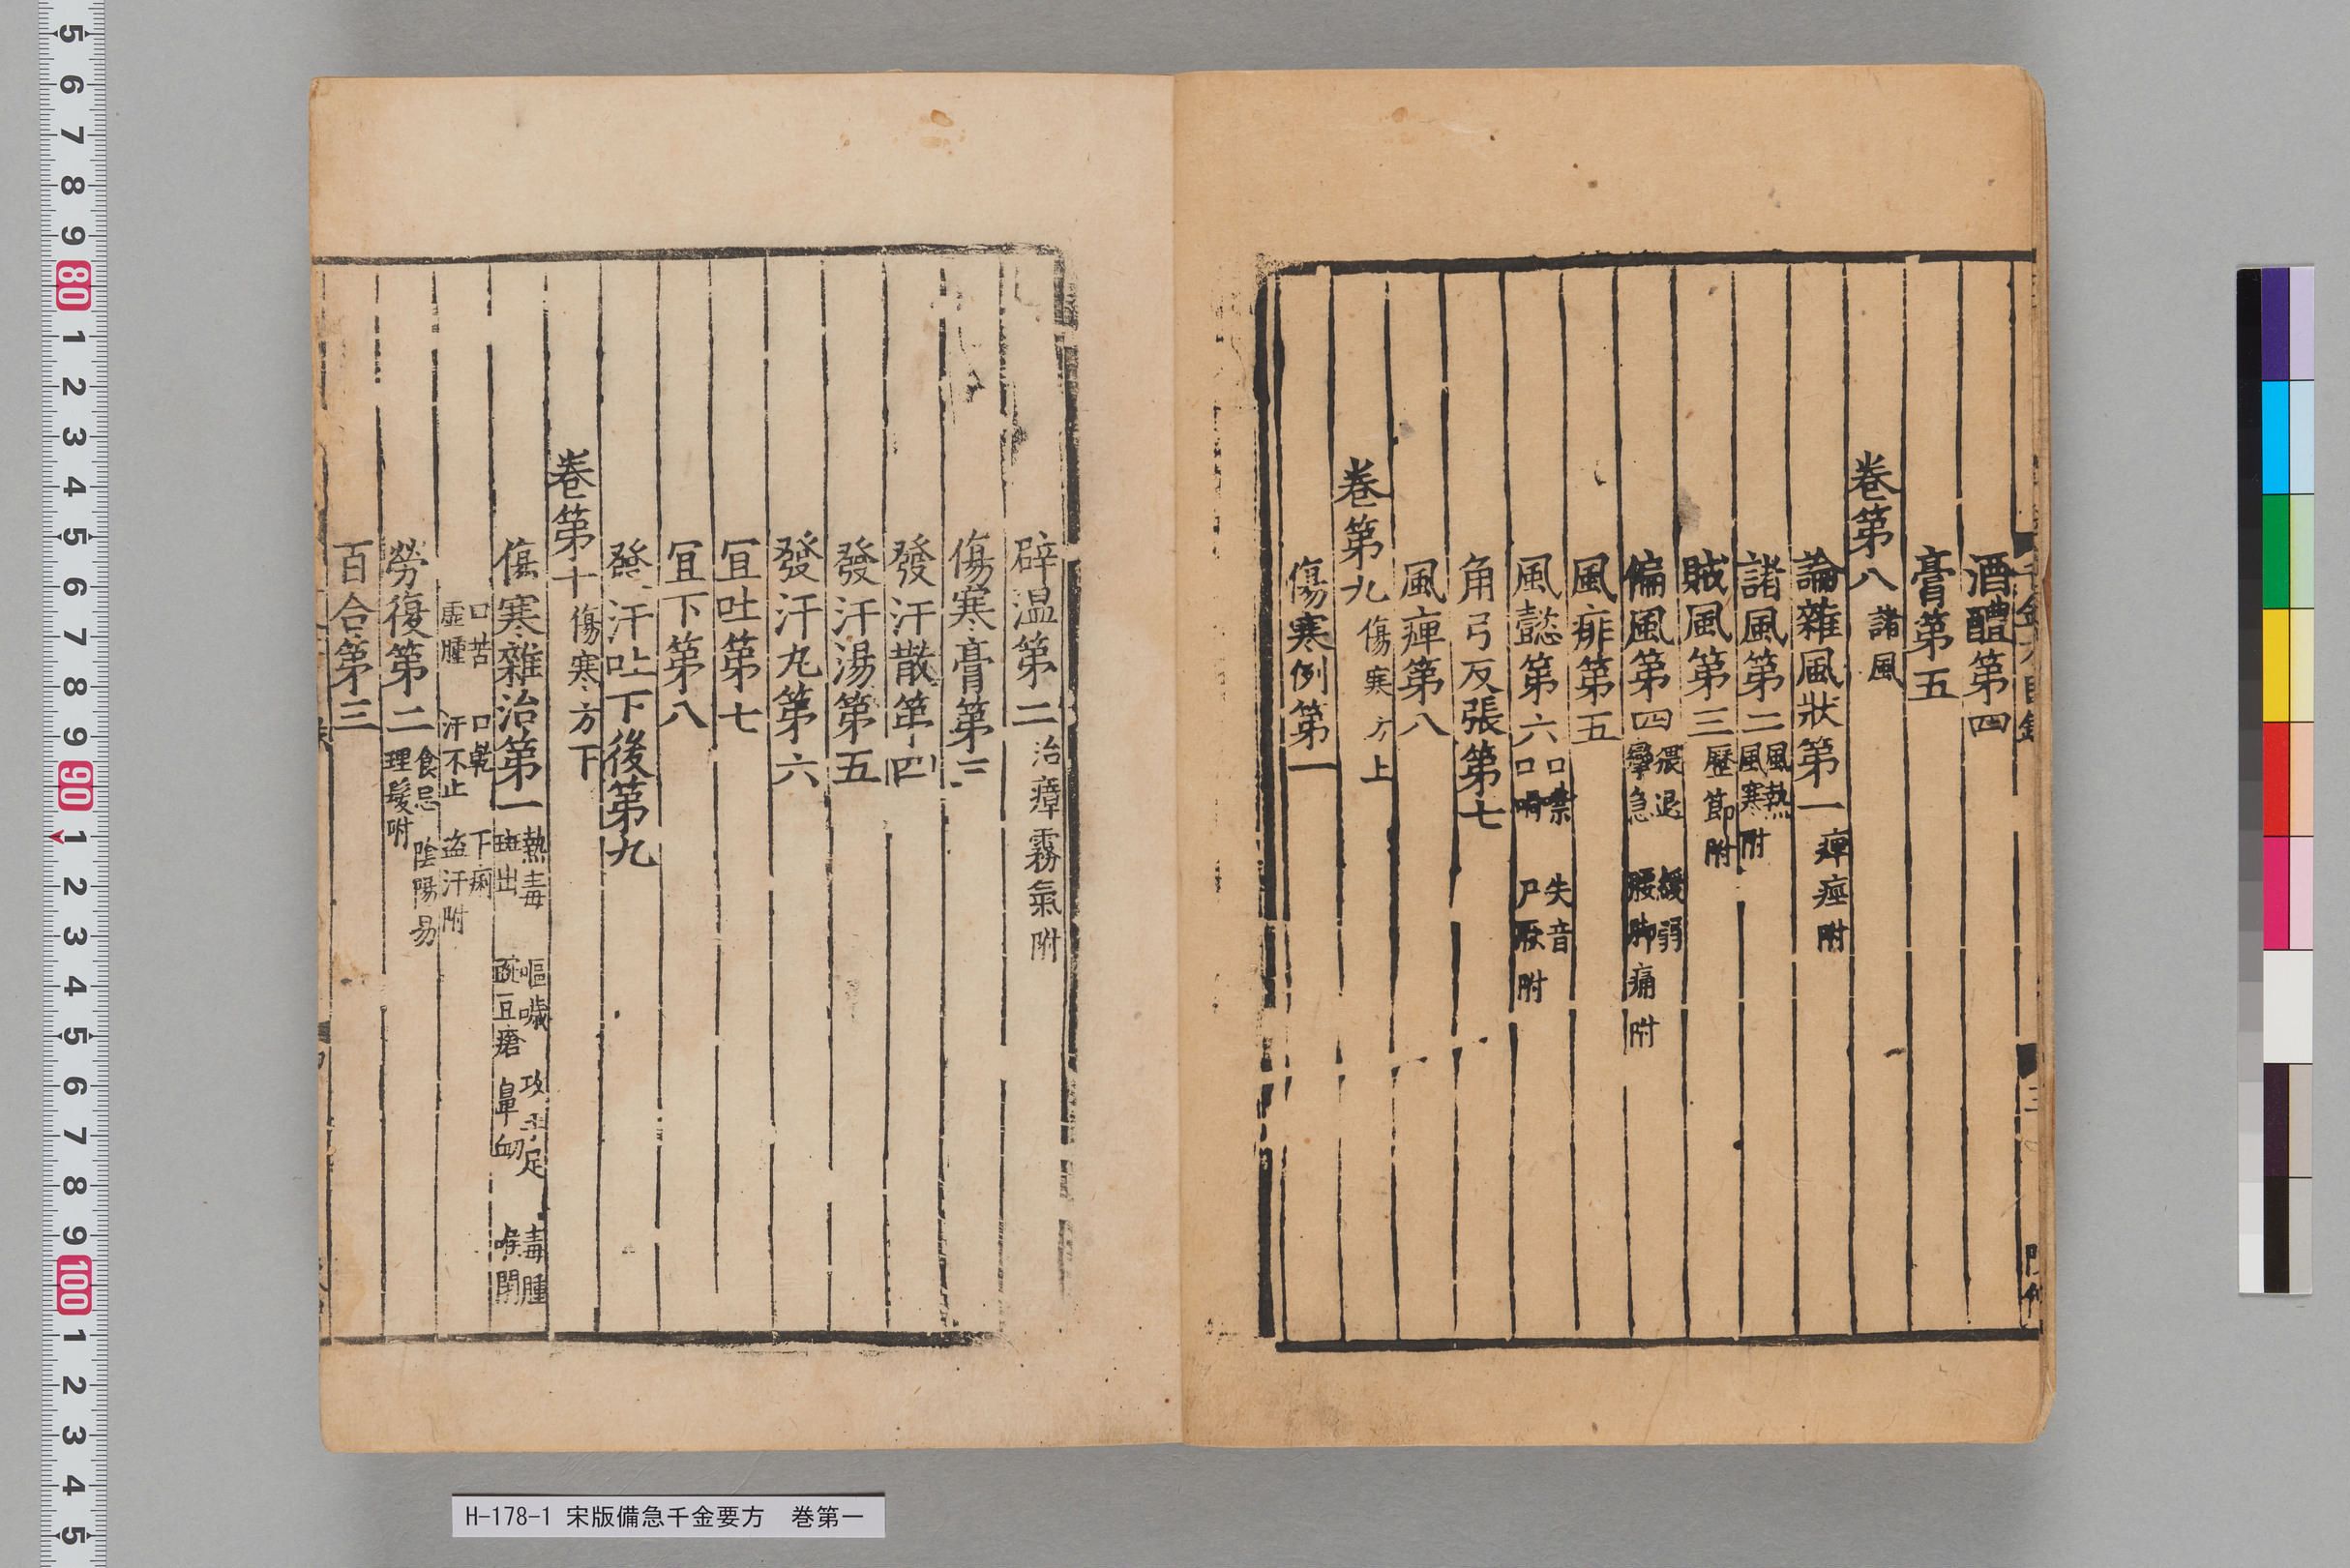 酒醴第四
膏第五
卷第八 諸風
論雜風狀第一 痺痙附
諸風第二 風熱 風寒附
賊風第三 歷節附
偏風第四 猥退 攣急 緩弱 腰脚痛附
風痱第五
風懿第六 口噤 口喎 失音 尸厥附
角弓反張第七
風痺第八
卷第九 傷寒方上
傷寒例第一
辟溫第二 治瘴霧氣附
傷寒膏第三
發汗散第四
發汗湯第五
發汗丸第六
冝吐第七
冝下第八
發汗吐下後第九
卷第十 傷寒方下
傷寒雜治第一 熱毒 斑出 嘔噦 豌豆瘡 攻手足 鼻衂 毒腫 喉閉
口苦 虛腫 口乾 汗不止 下痢 盗汗附
勞復第二 食忌 理髮附 陰陽易
百合第三
H-178-1 宋版備急千金要方 巻第一
5
6
7
8
9
80
1
2
3
4
5
6
7
8
9
90
1
2
3
4
5
6
7
8
9
100
1
2
3
4
5